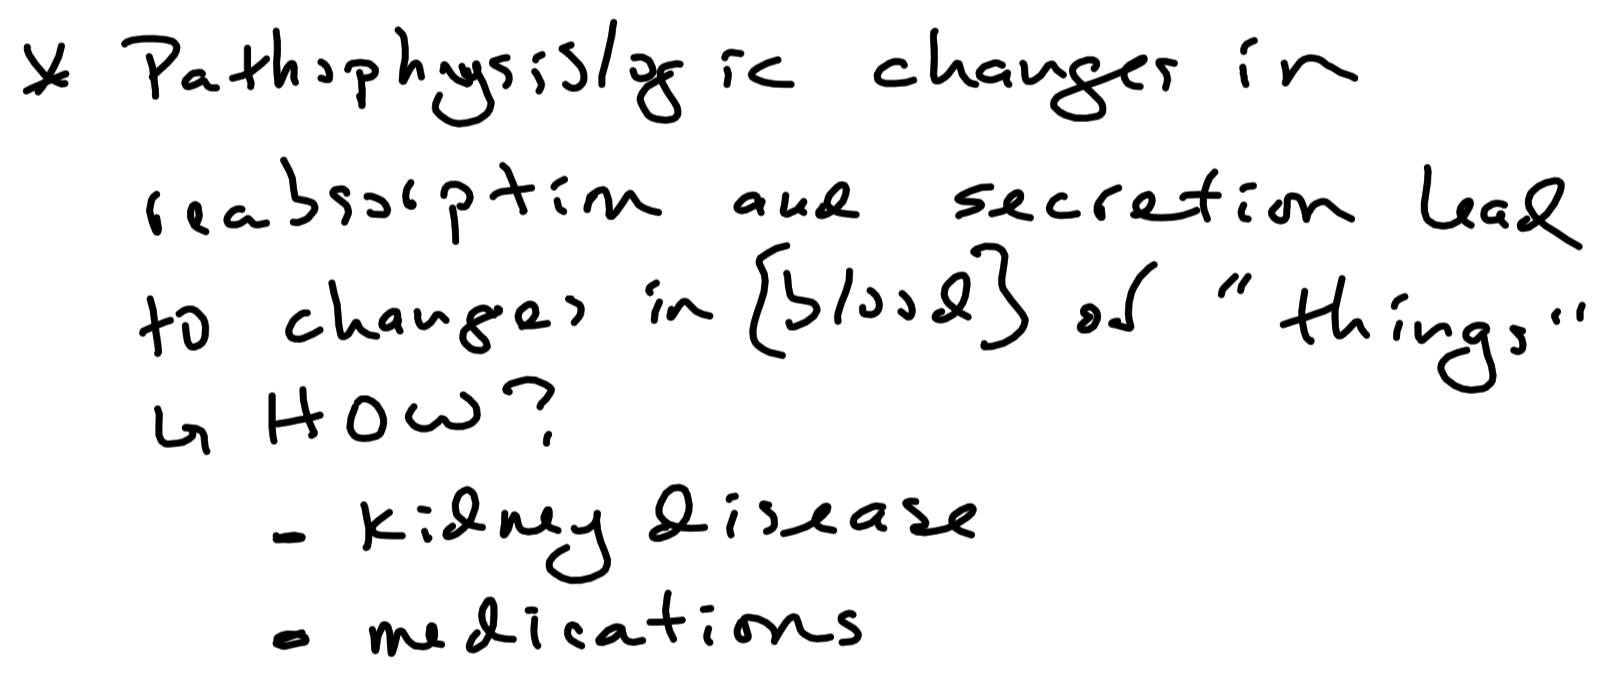 * Pathophysiologic changes in
reabsorption and secretion lead
to changes in [blood] of "things"
↳ How?
- kidney disease
- medications